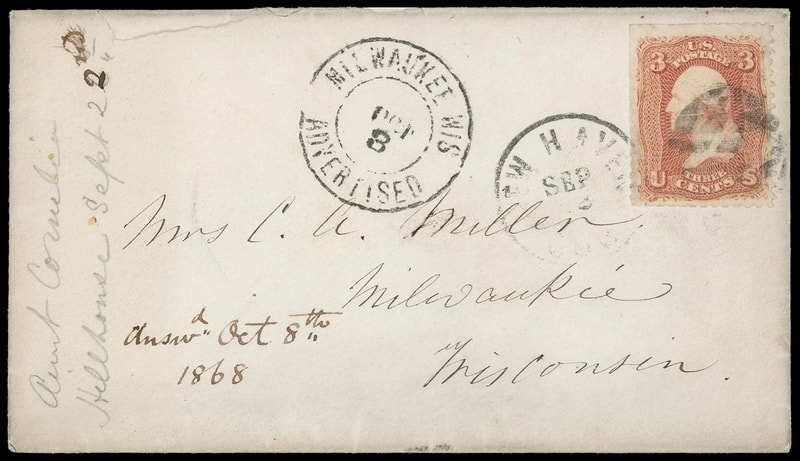 Aunt Cornelia
Hillhouse Sept 22
MILWAUKEE WIS
OCT
3
ADVERTISED
W HAVEN
SEP
3 U.S. 3
POSTAGE
THREE
U CENTS S
Mrs C. A. Miller
Milwaukie
Wisconsin.
Answd Oct 8th
1868